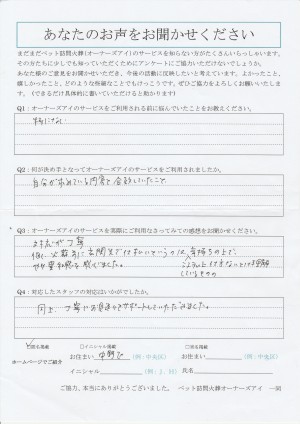 あなたのお声をお聞かせください
まだまだペット訪問火葬(オーナーズアイ)のサービスを知らない方がたくさんいらっしゃいます。
その方たちに少しでも知っていただくためにアンケートにご協力いただけないでしょうか。
あなた様のご意見をお聞かせいただき、今後の活動に反映したいと考えています。よかったこと、
嬉しかったこと、どのような些細なことでもけっこうです。ぜひご協力をよろしくお願いいたしま
す。（できるだけ具体的に書いていただけると助かります）
Q1：オーナーズアイのサービスをご利用される前に悩んでいたことをお教えください。
特になし
Q2：何が決め手となってオーナーズアイのサービスをご利用されましたか。
自分が求めている内容と合致していたこと
Q3：オーナーズアイのサービスを実際にご利用なさってみての感想をお聞かせください。
対応が丁寧
但し、火葬前に玄関先で
Q4：対応したスタッフの対応はいかがでしたか。
同上、丁寧に サポートしていただきました。
☑匿名掲載 □イニシャル掲載 □同名掲載
お住まい 中野区 （例：中央区） お住まい （例：中央区）
ホームページでご紹介
イニシャル （例：S. 様） 氏名
ご協力、本当にありがとうございました。 ペット訪問火葬オーナーズアイ 一同